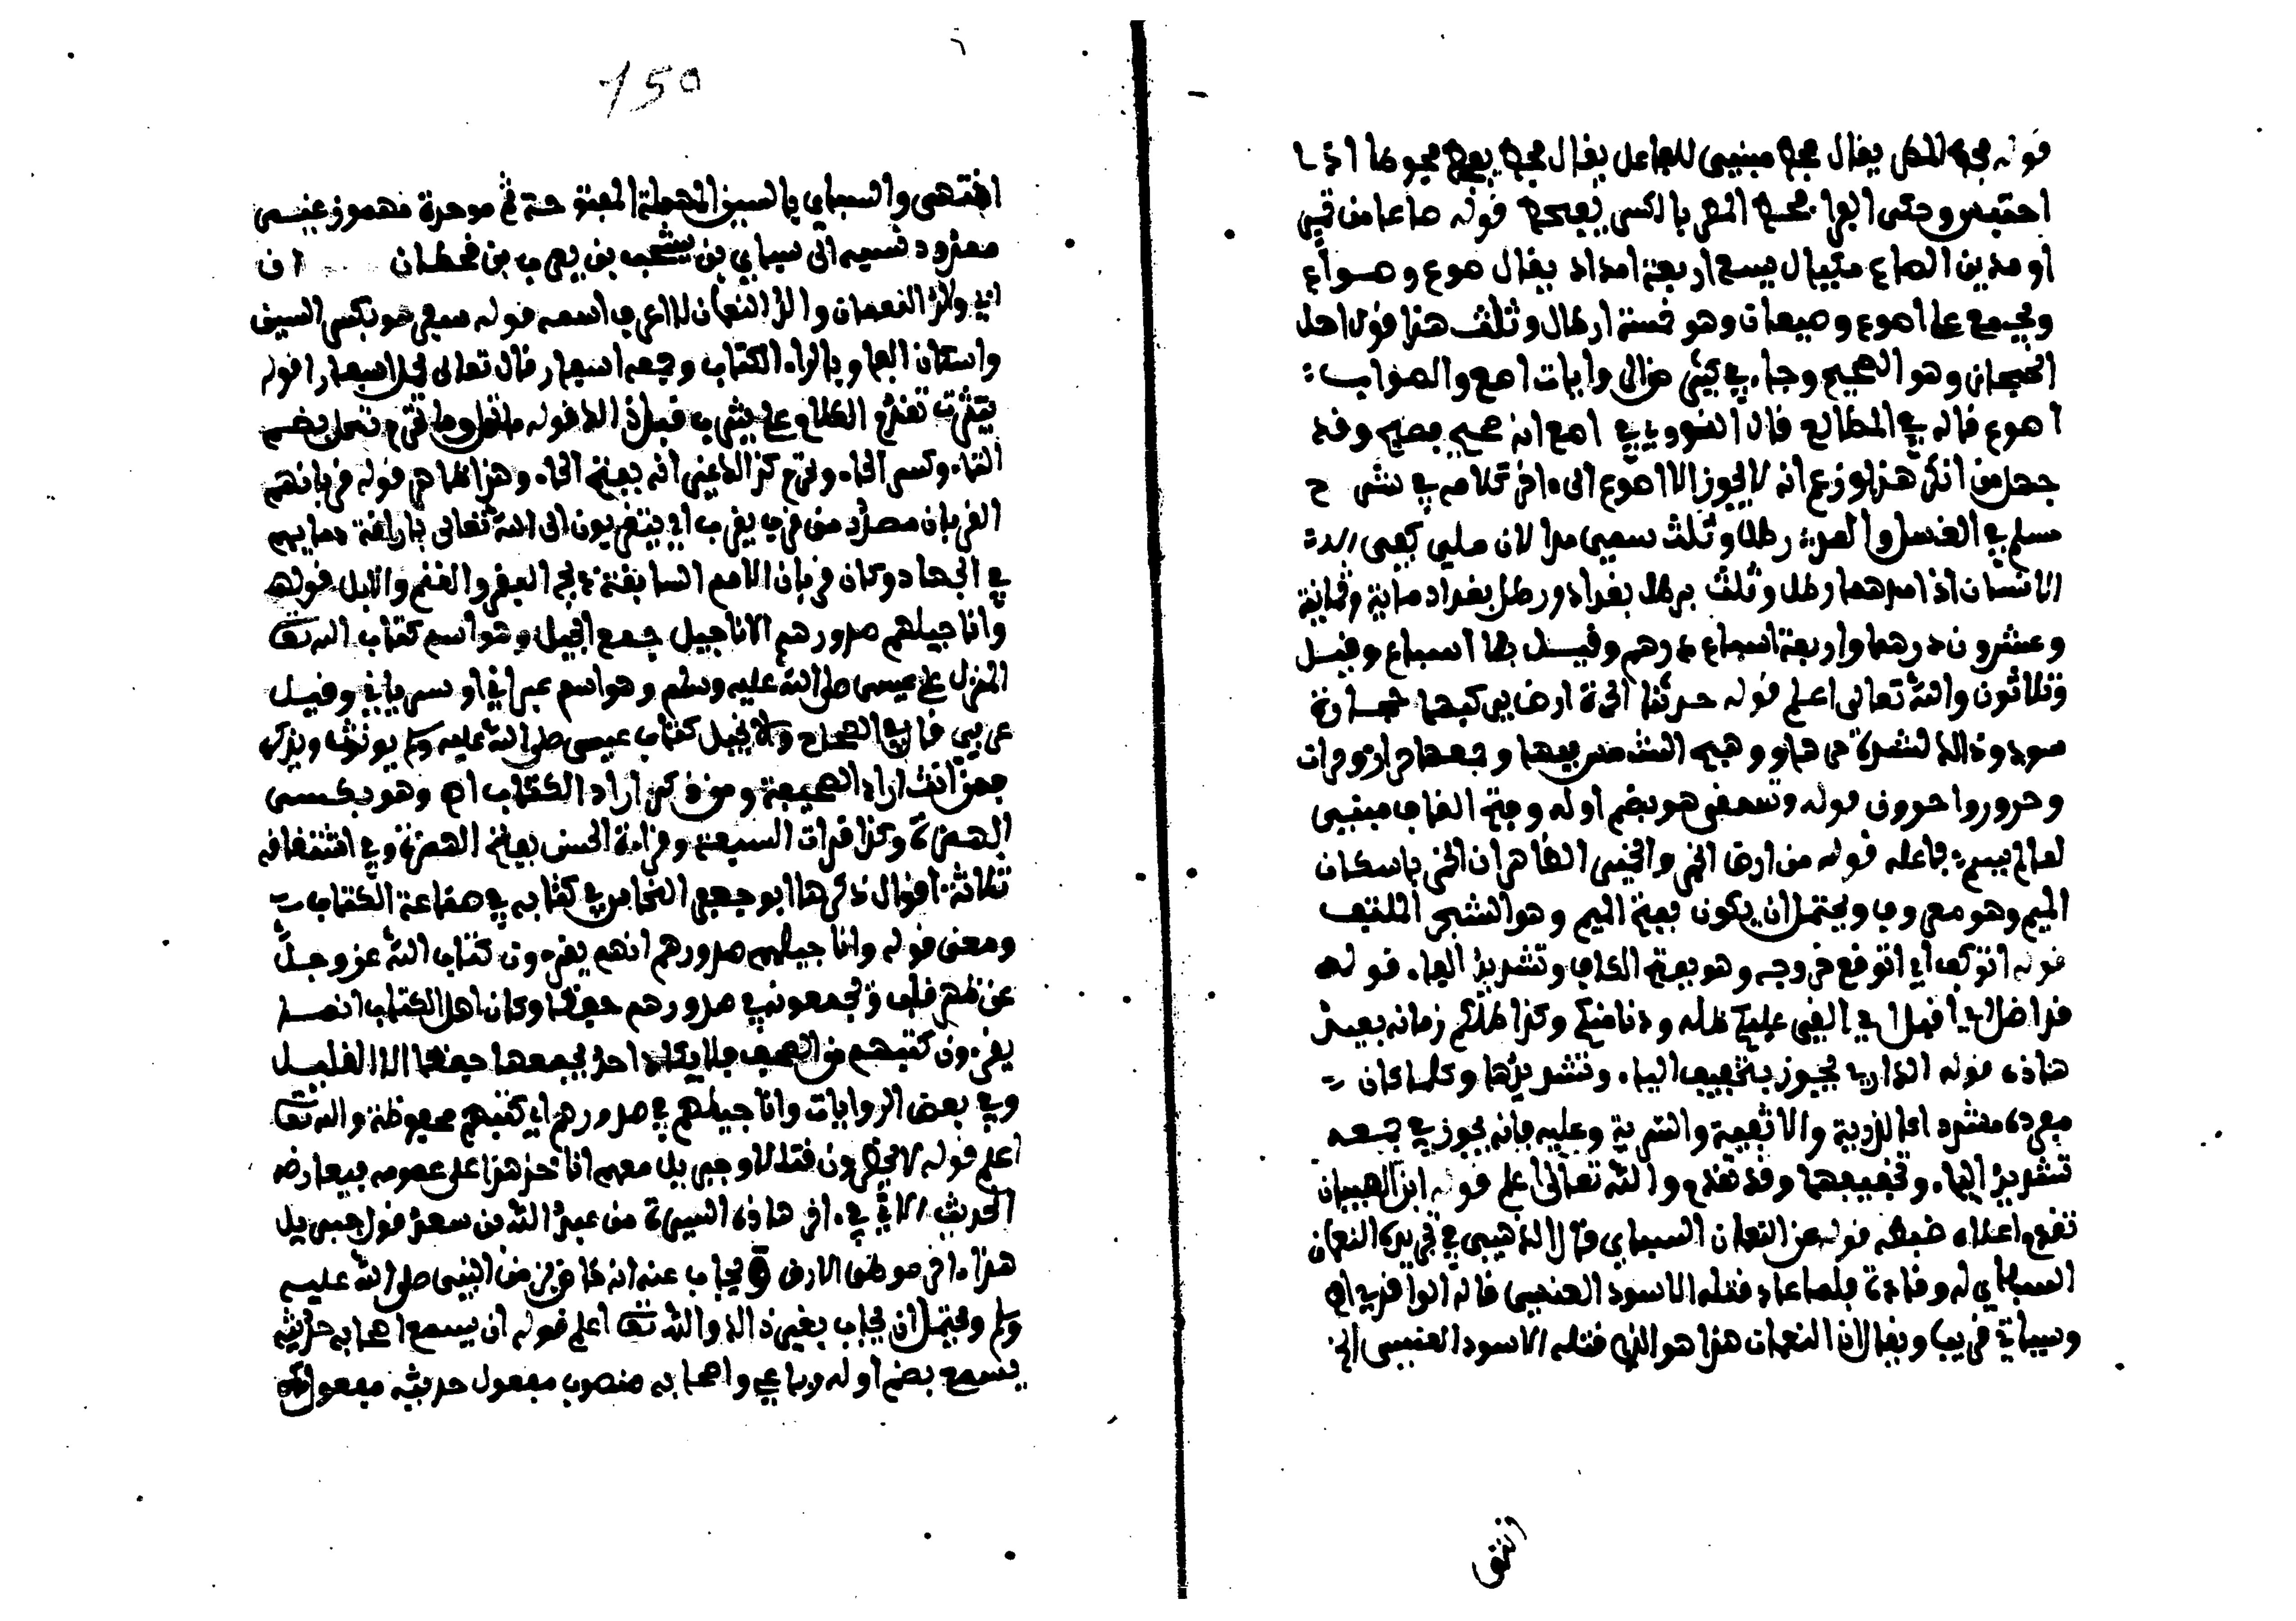 قوله قحط المطر يقال قحط مبني للفاعل يقال قحط يقحط قحوطا اذا
احتبس وحكى الفراء قحط المطر بالكسر يقحط قوله صاعا من
او مدين الصاع مكيال يسع اربعة امداد يقال صوع وصواع
ويجمع على اصوع وصيعان وهو خمسة ارطال وثلث هذا قول اهل
الحجاز وهو الصحيح وجاء في كثير من الروايات اصع والصواب
اصوع قاله في المطالع قال النووي في اصع انه صحيح فصيح وقد
جهل من انكر هذا وزعم انه لا يجوز الا اصوع الى اخر كلامه في شرح
مسلم في الغسل والمد رطل وثلث سمي مدا لان ملي كفي
الانسان اذا مدهما رطل وثلث برطل بغداد ورطل بغداد ماية وثمانية
وعشرون درهما واربعة اسباع درهم وقيل بلا اسباع وقيل
وثلاثون والله تعالى اعلم قوله حرتنا الحرة ارض تركبها حجارة
سود وذلك لشدة حرها ووهج الشمس فيها وجمعها حرار وحرات
وحرور واحرون قوله وسمعني هو بضم اوله وفتح القاف مبني
لما لم يسم فاعله قوله من ارض الخمر والخمير الظاهر ان الخمر باسكان
الميم وهو معروف ويحتمل ان يكون بفتح الميم وهو الشجر الملتف
قوله اتوكف اي اتوقع خروجه وهو بفتح الكاف وتشديد الفاء قوله
قد اظل اي اقبل اي القي عليكم ظله ودنا منكم وكذا اظلكم زمانه بعد
هاذه قوله الذراري يجوز بتخفيف الياء وتشديدها وكل ما كان
مفرده مشدد كالذرية والاثفية والسرية وعليه فانه يجوز في جمعه
تشديد الياء وتخفيفها وقد تقدم والله تعالى اعلم قوله ابن الهيبان
تقدم اعلاه ضبطه قوله عن النعمان السبايي قال الذهبي في تجريده النعمان
السبايي له وفادة فلما عاد قتله الاسود العنسي قاله الواقدي اه
وسياتي قريبا ويقال ان النعمان هذا هو الذي قتله الاسود العنسي الخ
انتهى
150
انتهى والسبايي بالسين المهملة المفتوحة ثم موحدة مهموز غير
ممدود نسبه الى سبايي بن يشجب بن يعرب بن قحطان
ابي ولد النعمان ولد النعمان لا اعرف اسمه قوله سفر هو بكسر السين
واسكان الفاء وبالراء الكتاب وجمعه اسفار قال تعالى يحمل اسفارا قوله
بيثرب تقدم الكلام على يثرب قبل ذلك قوله ما تحل وما تحرم تحل بضم
التاء وكسر الحاء وتحرم كذلك غير انه بفتح الحاء وهذا ظاهر قوله قربانهم
القربان مصدر من قرب يقرب اي يتقربون الى الله تعالى باراقة دمايهم
في الجهاد وكان قربان الامم السابقة ذبح البقر والغنم والابل قوله
واناجيلهم صدورهم الاناجيل جمع انجيل وهو اسم كتاب الله تعا
المنزل على عيسى صلى الله عليه وسلم وهو اسم عبراني او سرياني وقيل
عربي قال في الصحاح والانجيل كتاب عيسى صلى الله عليه وسلم يونث ويذكر
فمن انث اراد الصحيفة ومن ذكر اراد الكتاب اه وهو بكسر
الهمزة وكذا قرات السبعة وقراءة الحسن بفتح الهمزة وفي اشتقاقه
ثلاثة اقوال ذكرها ابو جعفر النحاس في كتابه في صناعة الكتاب
ومعنى قوله واناجيلهم صدورهم انهم يقرءون كتاب الله عز وجل
عن ظهر قلب ويجمعونه في صدورهم حفظا وكان اهل الكتاب انما
يقرءون كتبهم من الصحف فلا يكاد احد يجمعها حفظا الا القليل
وفي بعض الروايات واناجيلهم في صدورهم اي كتبهم محفوظة والله تعا
اعلم قوله لا يحضرون قتالا الا وجبريل معهم اذا اخذ هذا على عمومه فيعارضه
الحديث الاتي في اخر هاذه السيرة من عند الله بن سعد قول جبريل
هذا اخر موطئي الارض ويجاب عنه انه كان من النبي صلى الله عليه
وسلم ويحتمل ان يجاب بغير ذلك والله تعا اعلم قوله ان يسمع اصحابه حديثه
يسمع بضم اوله رباعي واصحابه منصوب مفعول حديثه مفعول